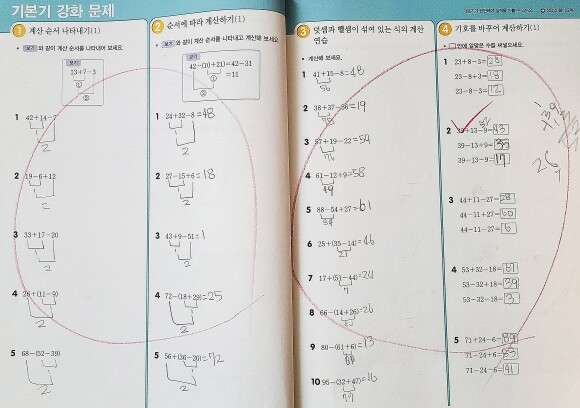 기본기 강화 문제
1 계산 순서 나타내기(1)
보기 와 같이 계산 순서를 나타내어 보세요.
보기
13+7-3
①
②
1 42+14-7
2
2 19-6+12
2
3 33+17-20
2
4 26+(11-9)
2
5 68-(52-39)
2
2 순서에 따라 계산하기(1)
보기 와 같이 계산 순서를 나타내고 계산해 보세요.
보기
42-(10+21)=42-31
=11
①
②
1 24+32-8=48
2
2 27-15+6=18
2
3 43+9-51=1
2
4 72-(18+29)=25
2
5 56+(36-20)=72
2
3 덧셈과 뺄셈이 섞여 있는 식의 계산 연습
계산해 보세요.
1 41+15-8=48
56
2 38+37-56=19
75
3 57+19-22=54
76
4 61-12+9=58
49
5 88-54+27=61
34
6 25+(35-14)=46
21
7 17+(51-44)=24
7
8 66-(14+26)=26
9 80-(61+6)=13
10 95-(32+47)=16
79
4 기호를 바꾸어 계산하기(1)
안에 알맞은 수를 써넣으세요.
1 23+8-3=28
23-8+3=18
23-8-3=12
2 39+13-9=43
39-13+9=35
39-13-9=17
3 44+11-27=28
44-11+27=60
44-11-27=6
4 53+32-18=67
53-32+18=39
53-32-18=3
5 71+24-6=89
71-24+6=53
71-24-6=41